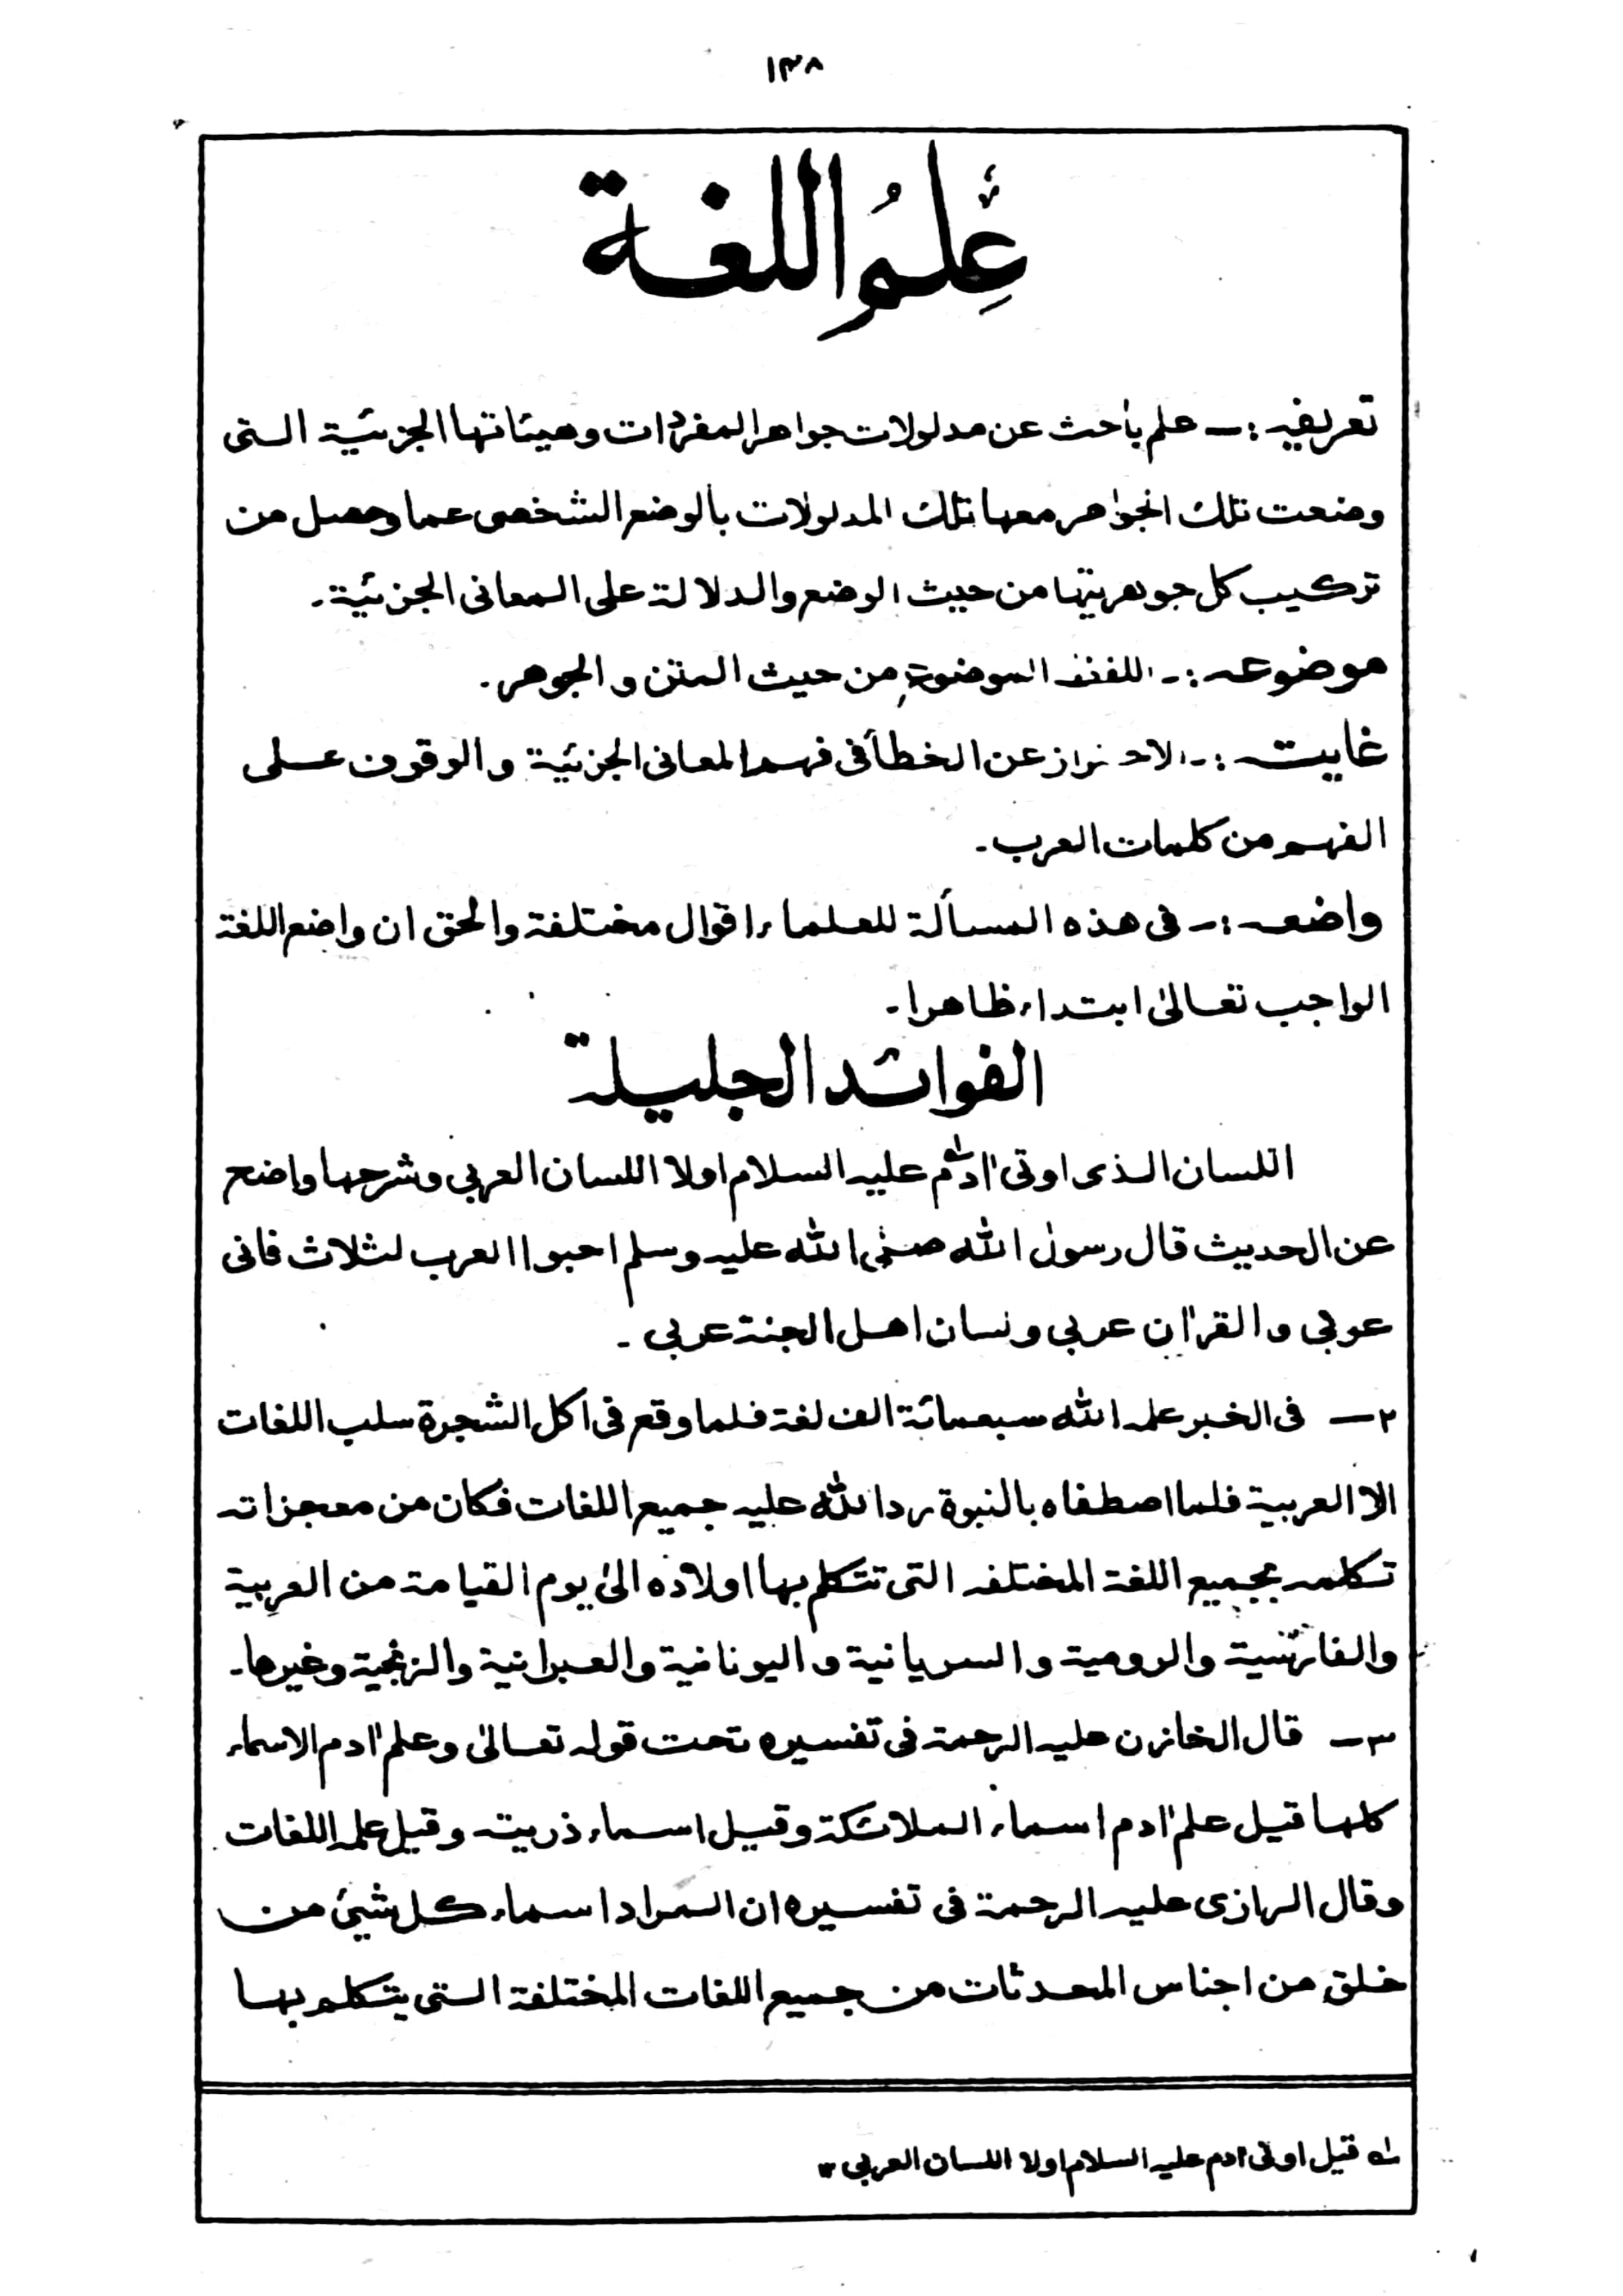 ١٣٨
عِلمُ اللغة
تعريفه :ـ علم باحث عن مدلولات جواهر المفردات وهيئاتها الجزئية التى
وضعت تلك الجواهر معها تلك المدلولات بالوضع الشخصى عما وحصل من
تركيب كل جوهر جوهر من حيث الوضع والدلالة على المعانى الجزئية ـ
موضوعه :ـ اللفظ الموضوع من حيث المتن و الجوهر ـ
غايته :ـ الاحتراز عن الخطأ فى فهم المعانى الجزئية والوقوف على
الفهم من كلمات العرب ـ
واضعه :ـ فى هذه المسألة للعلماء اقوال مختلفة والحق ان واضع اللغة
الواجب تعالىٰ ابتداء ظاهرا ـ
الفوائد الجليلة
اللسان الذى اوتى اٰدم عليه السلام اولا اللسان العربي وشرحها واضح
عن الحديث قال رسول الله صلى الله عليه وسلم احبوا العرب لثلاث فانى
عربي والقراٰن عربي ولسان اهل الجنة عربي ـ
٢ـ فى الخبر علمه الله سبعمائة الف لغة فلما وقع فى اكل الشجرة سلب اللغات
الا العربية فلما اصطفاه بالنبوة رد الله عليه جميع اللغات فكان من معجزاته
تكلمه بجميع اللغة المختلفه التى تتكلم بها اولاده الىٰ يوم القيامة من العربية
والفارسية والرومية والسريانية واليونانية والعبرانية والزنجية وغيرها ـ
٣ـ قال الخازن عليه الرحمة فى تفسيره تحت قوله تعالىٰ وعلم اٰدم الاسماء
كلها قيل علم اٰدم اسماء الملائكة وقيل اسماء ذريته وقيل علمه اللغات
وقال الرازى عليه الرحمة فى تفسيره ان المراد اسماء كل شيئ من
خلق من اجناس المحدثات من جميع اللغات المختلفة التى يتكلم بها
له قيل اوتى اٰدم عليه السلام اولا اللسان العربي ١٢